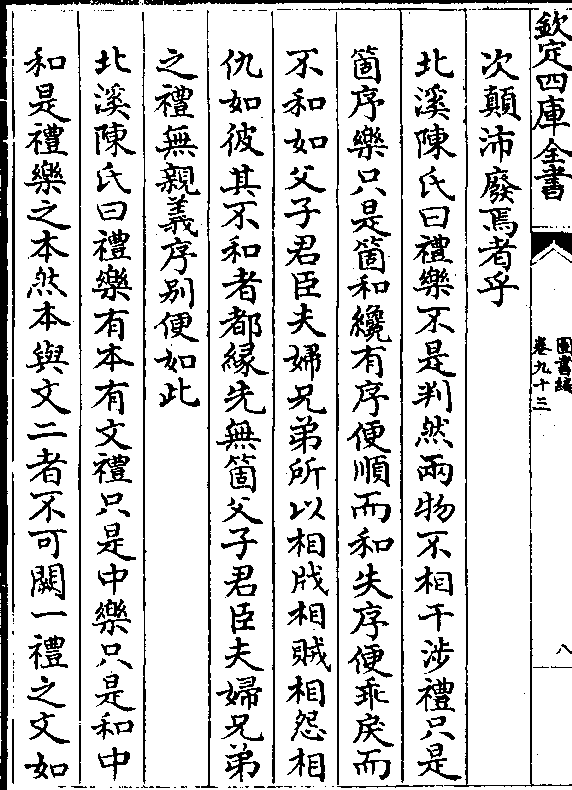 欽定四庫全書
圖書編
卷九十三
八
次顛沛廢焉者乎
北溪陳氏曰禮樂不是判然兩物不相干涉禮只是
箇序樂只是箇和纔有序便順而和失序便乖戾而
不和如父子君臣夫婦兄弟所以相戕相賊相怨相
仇如彼其不和者都緣先無箇父子君臣夫婦兄弟
之禮無親義序别便如此
北溪陳氏曰禮樂有本有文禮只是中樂只是和中
和是禮樂之本然本與文二者不可闕一禮之文如